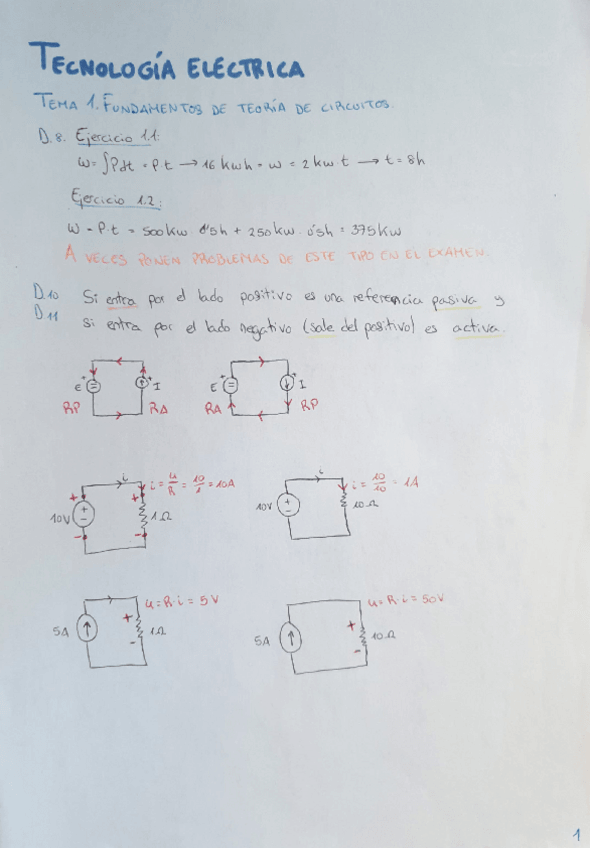 TECNOLOGÍA ELÉCTRICA
TEMA 1. FUNDAMENTOS DE TEORÍA DE CIRCUITOS.
D.8. Ejercicio 1.1:
W = ∫P dt = P t → 16 kWh = W = 2 kW t → t = 8h
Ejercicio 1.2:
W = P·t = 500 kW · 0'5h + 250 kW · 0'5h = 375 kW
A VECES PONEN PROBLEMAS DE ESTE TIPO EN EL EXAMEN.
D.10 Si entra por el lado positivo es una referencia pasiva y
D.11 si entra por el lado negativo (sale del positivo) es activa.
E + + I E + + I
RP RA RA RP
i i = u/R = 10/1 = 10A i i = 10/10 = 1A
10V + - + - 1Ω 10V + - 10Ω
u = R·i = 5V u = R·i = 50V
5A + - 1Ω 5A + - 10Ω
1